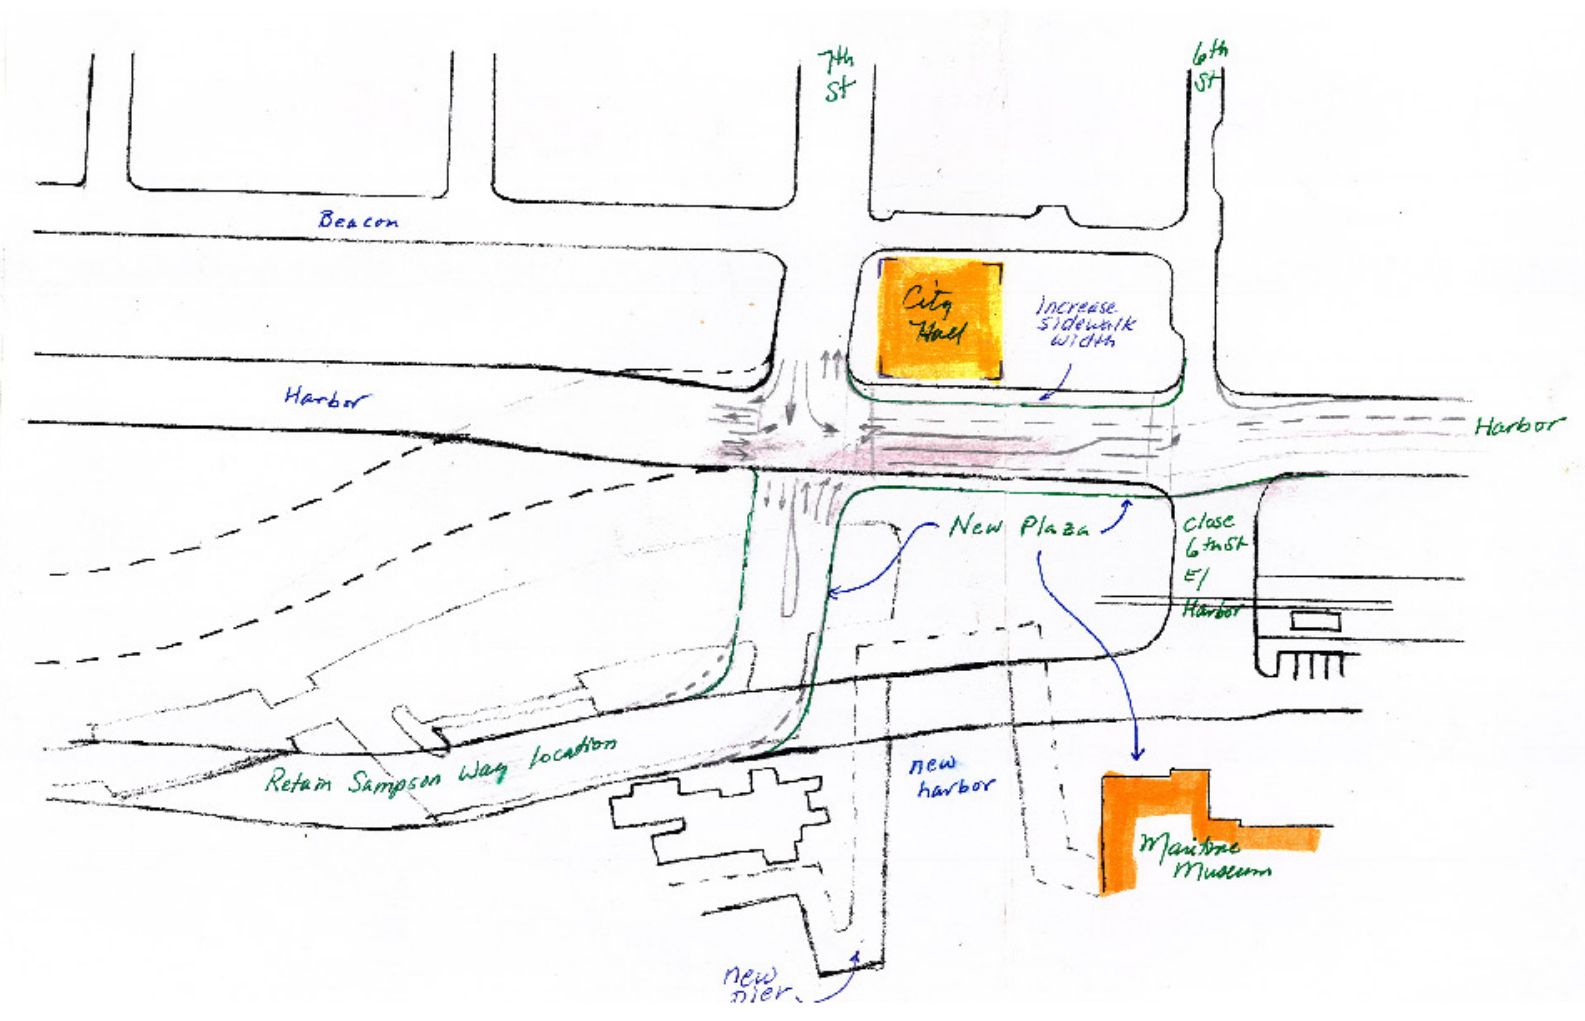 7th
St
6th
St
Beacon
City
Hall
Increase
sidewalk
width
Harbor
Harbor
New Plaza
Close
6th St
E/
Harbor
Retain Sampson Way location
new
harbor
Maritime
Museum
new
pier